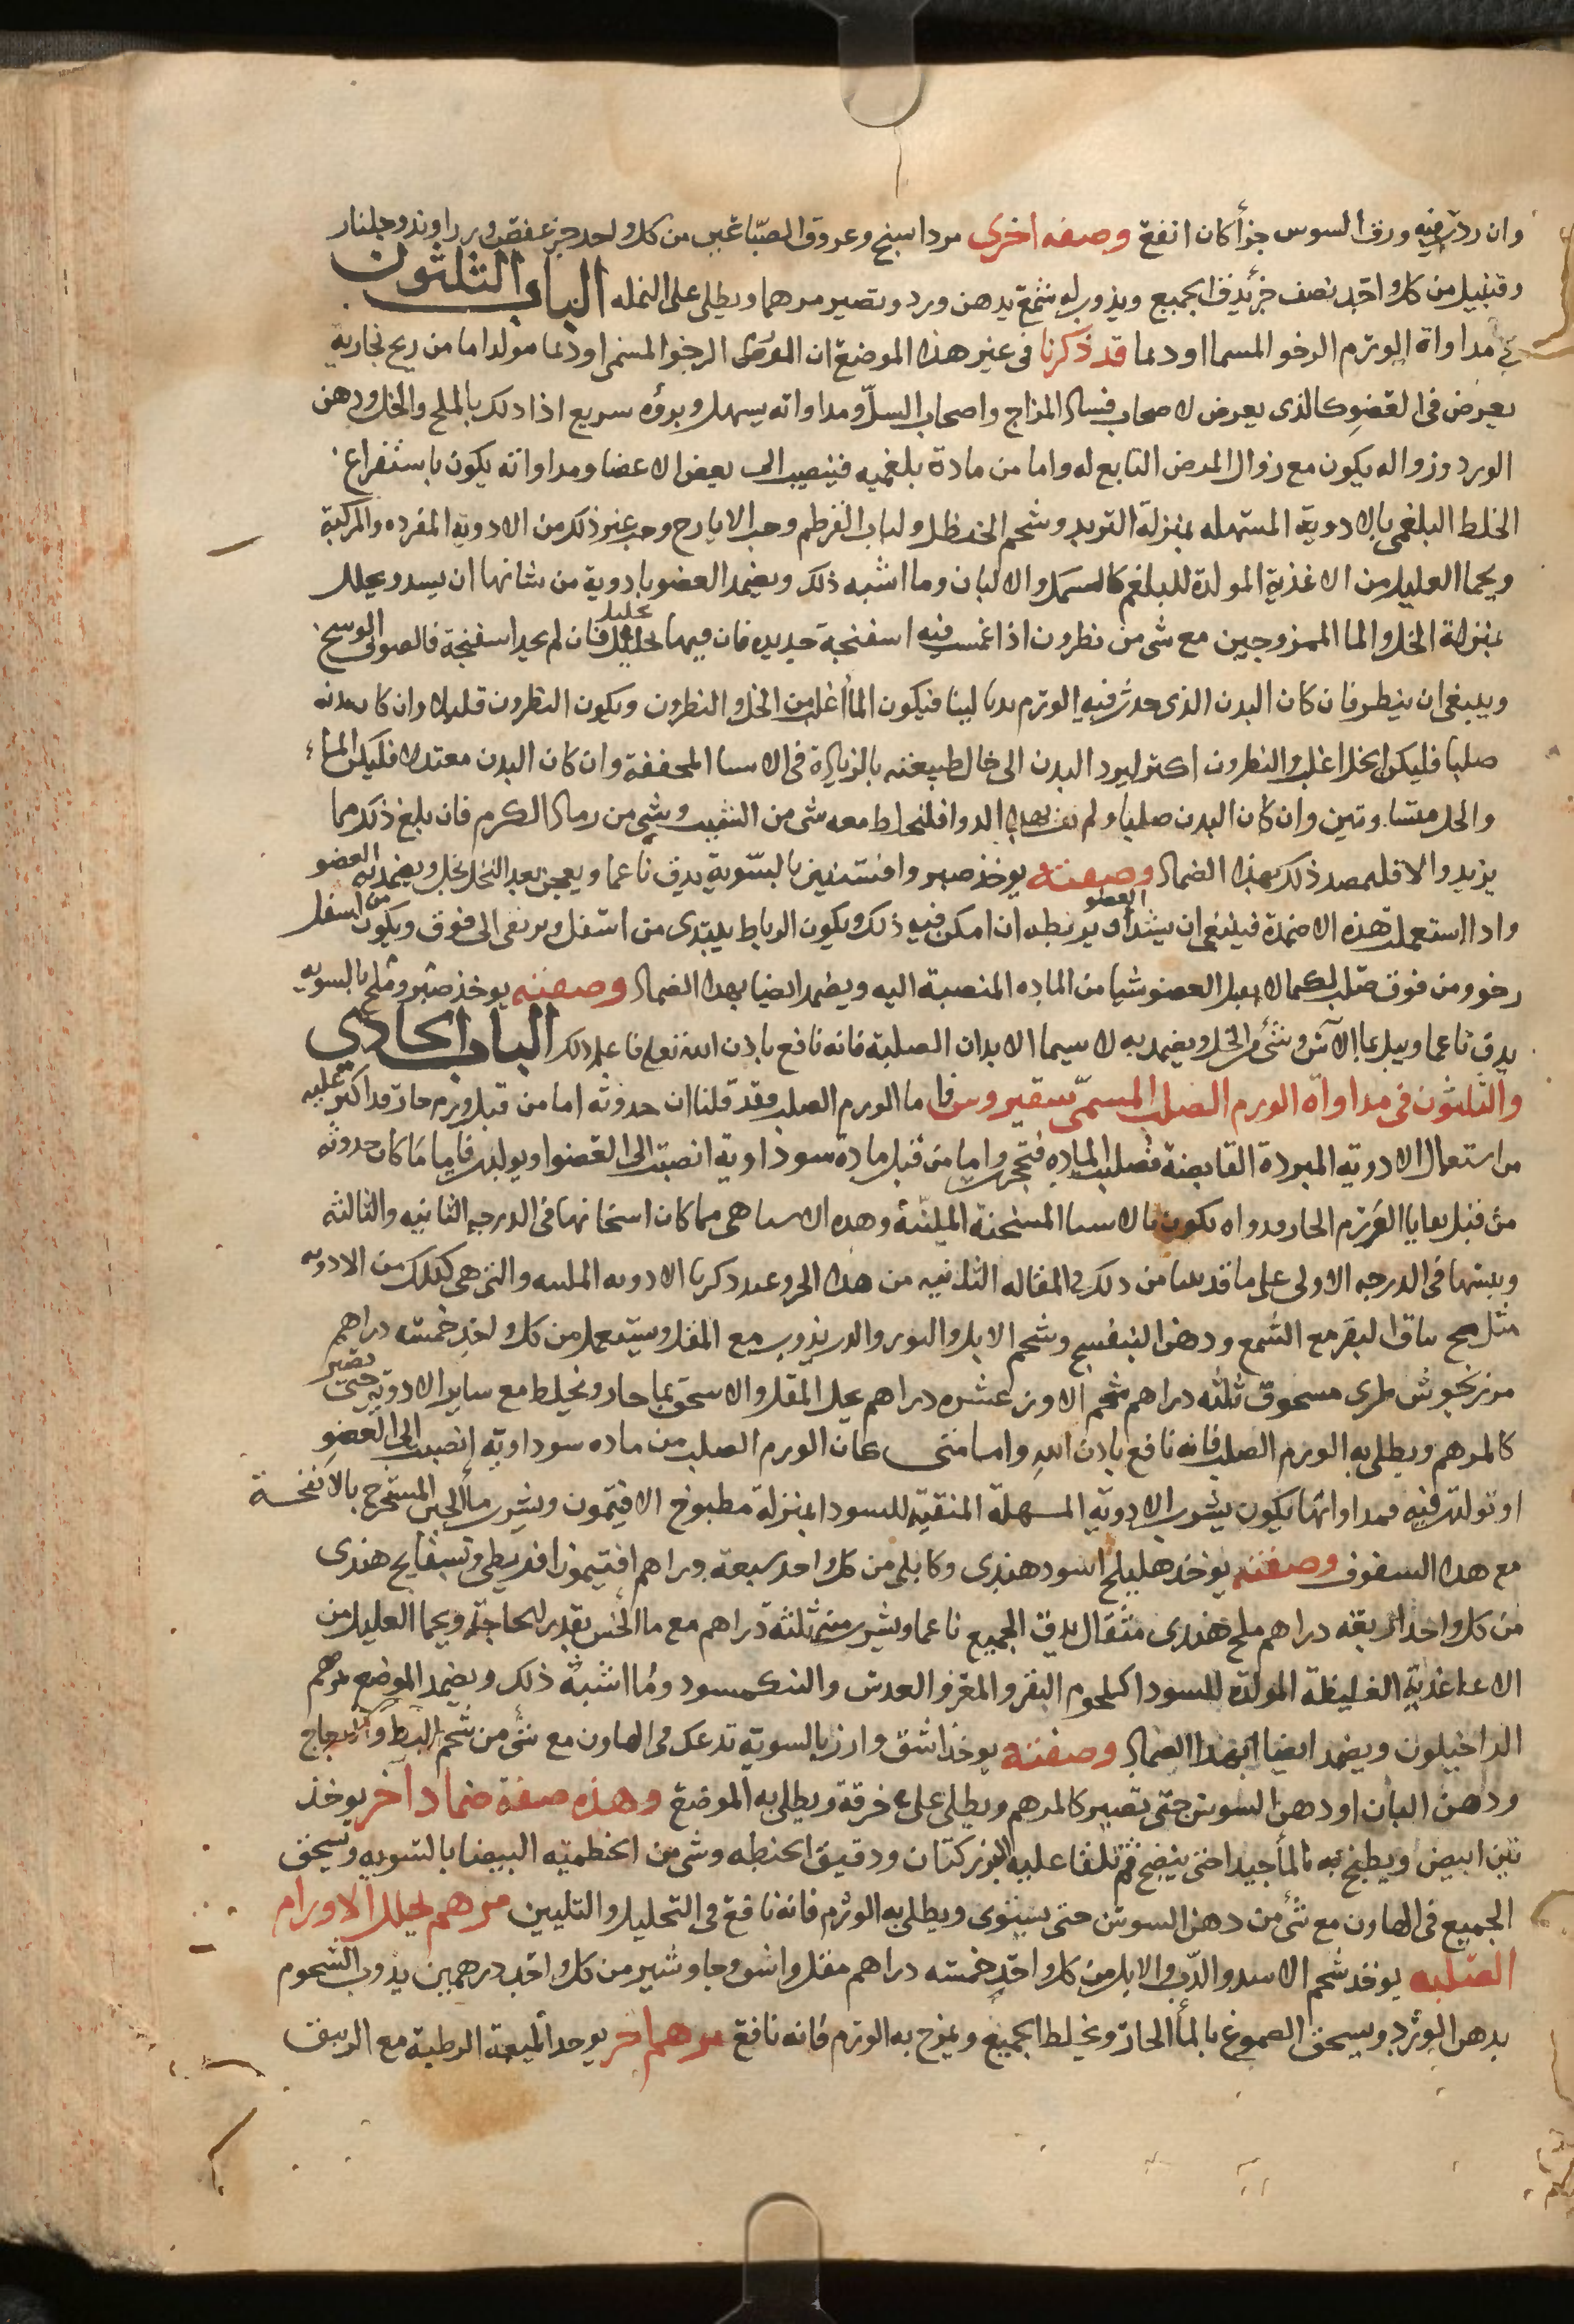 وان ردت فيه ورق السوس جزأ كان انفع وصفه اخرى مرداسنج وعروق الصباغين من كل واحد جزء عفص وزراوند وجلنار
وقنبيل من كل واحد نصف جزء يدق الجميع ويذوب له شمع بدهن ورد وتصير مرهما ويطلى على النمله الباب الثلثون
في مداواة الورم الرخو المسما اودىما قد ذكرنا فى غير هذا الموضع ان الورم الرخو المسمى اوذىما مولد اما من ريح بخاريه
يعرض فى العضو كالذى يعرض لاصحاب فساد المزاج واصحاب السل ومداواته يسهل وبروه سريع اذا دلك بالملح والخل ودهن
الورد وزواله يكون مع زوال المرض التابع له واما من مادة بلغميه فينصب الى بعض الاعضا ومداواته يكون باستفراغ
الخلط البلغمى بالادوية المسهله بمنزلة التربد وشحم الحنظل ولباب القرطم وحب الايارج وغير ذلك من الادوية المفرده والمركبة
ويحما العليل من الاغذية المولدة للبلغم كالسمك والالبان وما اشبه ذلك ويضمد العضو بادوية من شانها ان يسدد ويحلل
بمنزلة الخل والما الممزوجين مع شى من نطرون اذا غمست فيه اسفنجة جديده فان فيها تحليل فان لم يجد اسفنجة فالصوف الوسخ
وينبغى ان ينظر فان كان البدن الذى حدث فيه الورم بدنا لينا فيكون الماأ اغلب من الخل والنطرون ويكون النطرون قليلا وان كا بدنه
صلبا فليكن الخل اغلب والنطرون اكثر ليرد البدن الى حال طبيعته بالزيادة فى الاسىا المجففة وان كان البدن معتدلا فليكن الماء
والخل متساويين وان كان البدن صلبا ولم بهذا الدوا فليخلط معه شى من الشب وشي من رماد الكرم فان بلغ ذلك مما
يزيد والا فليضمد ذلك بهذا الضماد وصفته يوخذ صبر وافسنتين بالسوية يدق ناعما ويعجن بعد النخل بخل ويضمد به العضو
واذا استعملت هذه الاضمدة فينبغى ان يشد العضو ويربطه ان امكن فيه ذلك ويكون الرباط يبتدى من اسفل ويرتقى الى فوق ويكون من اسفل
رخو ومن فوق صلب لكما لا يقبل العضو شيا من الماده المنصبة اليه ويضمد ايضا بهذا الضماد وصفته يوخذ صبر وملح بالسويه
يدق ناعما ويبل بما الآس وشئ من الخل ويضمد به لاسيما الابدان الصلبة فانه نافع باذن الله تعالى فاعلم ذلك الباب الحادى
والثلثون فى مداواة الورم الصلب المسمى سقيروس فاما الورم الصلب فقد قلنا ان حدوثه اما من قبل ورم حار قد اكثر عليه
من استعمال الادويه المبردة القابضة فصلبت الماده فتحجرت واما من قبل مادة سوداوية انصبت الى العضو او تولدت فاما ما كان حدوثه
من قبل بقايا الورم الحار فدواه يكون بالاسىا المسخنة الملينة وهده الاسىا هى مما كان اسخانها فى الدرجه الثانيه والثالثه
ويبسها فى الدرجه الاولى على ما قد بينا من دلك في المقاله الثانيه من هدا الجزو عند دكرنا الادويه الملينه والتى هى كذلك من الادويه
مثل مخ ساق البقر مع الشمع ودهن البنفسج وشحم الابل والثور والدب يذوب مع المقل ويستعمل من كل واحد خمسه دراهم
مرزنجوش طرى مسحوق ثلثه دراهم شحم الاوز عشره دراهم يحل المقل والاسحق بما حار ويخلط مع ساير الادويه حتى تصير
كالمرهم ويطلى به الورم الصلب فانه نافع بادن الله واما متى كان الورم الصلب من ماده سوداويه انصبت الى العضو
او تولدت فيه فمداواتها يكون بشرب الادويه المسهلة المنقيه للسودا بمنزلة مطبوخ الافتيمون وبشرب ماأ الجبن المستخرج بالانفخة
مع هدا السفوف وصفته يوخذ هليلج اسود هندى وكابلى من كل واحد سبعة دراهم افتيمون افريطى وبسفايج هندى
من كل واحد اربعة دراهم ملح هندى مثقال يدق الجميع ناعما ويشرب منه ثلثة دراهم مع ما الجبن بقدر الحاجة ويحما العليل من
الاغذية الغليظة المولدة للسودا كلحوم البقر والمعز والعدس والنمكسود وما اشبه ذلك ويضمد الموضع بمرهم
الداخيلون ويضمد ايضا بهذا الضماد وصفته يوخذ اشق وارز بالسوية تدعك فى الهاون مع شئ من شحم البط والدجاج
ودهن البان او دهن السوسن حتى تصير كالمرهم ويطلى على خرقة ويطلى به الموضع وهذه صفة ضماد اخر يوخذ
تين ابيض ويطبخ به بالماأ جيدا حتى ينضج ثم تلقا عليه بزر كتان ودقيق الحنطه وشى من الخطميه البيضا بالسويه ويسحق
الجميع فى الهاون مع شئ من دهن السوسن حتى يستوى ويطلى به الورم فانه نافع فى التحليل والتليين مرهم يحلل الاورام
الصلبه يوخذ شحم الاسد والدب والابل من كل واحد خمسه دراهم مقل واشق وجاوشير من كل واحد درهمين يذوب الشحوم
بدهن الورد ويسحق الصموغ بالماأ الحار ويخلط الجميع ويمزج به الورم فانه نافع مرهم اخر يوخد الميعة الرطبة مع الزيبق